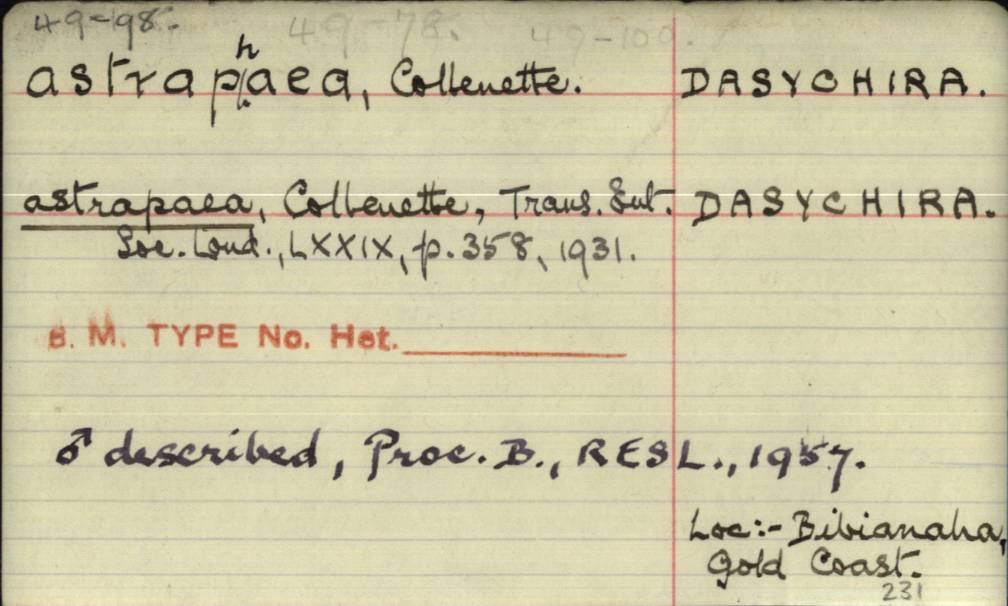 49-198. 49-78. 49-100.
astraphaea, Collenette. DASYCHIRA.
astrapaea, Collenette, Trans. Ent. DASYCHIRA.
Soc. Lond., LXXIX, p. 358, 1931.
B. M. TYPE No. Het.
♂ described, Proc. B., RESL., 1957.
Loc:- Bibianaha,
Gold Coast.
231